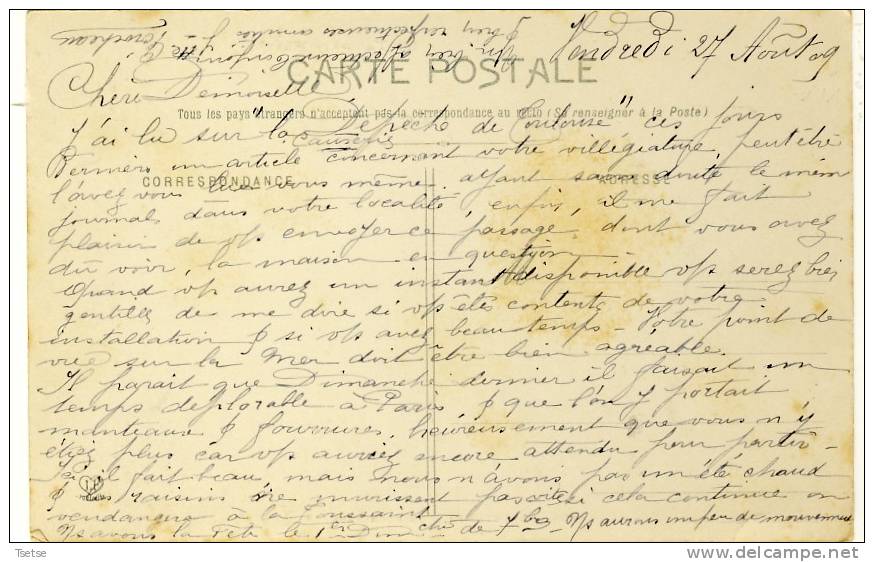 Vendredi 27 Août 09
CARTE POSTALE
Chère Demoiselle
Tous les pays étrangers n'acceptent pas la correspondance au recto (Se renseigner à la Poste)
J'ai lu sur "la Dépêche de Toulouse" ces jours
Derniers un article concernant votre villégiature, peut être
CORRESPONDANCE
ADRESSE
l'avez vous lu vous même, ayant sans doute le mêm
journal dans votre localité, enfin, il me fait
plaisir de vs envoyer ce passage, dont vous avez
dû voir, la maison en question
Quand vs aurez un instant disponible vs serez bien
gentille de me dire si vs êtes contente de votre
installation & si vs avez beau temps - Votre point de
vue sur la Mer doit être bien agréable.
Il parait que Dimanche dernier il faisait un
temps déplorable à Paris & que l'on y portait
manteaux & fourrures, heureusement que vous n'y
étiez plus car vs auriez encore attendu pour partir -
Ici il fait beau, mais nous n'avons pas un été chaud
& les raisins ne murissent pas vite, si cela continue on
vendangera à la Toussaint
Ns avons la Fête le 1er Dimche de 7bre - Ns aurons un peu de mouvement
Tsetse
delcampe.net